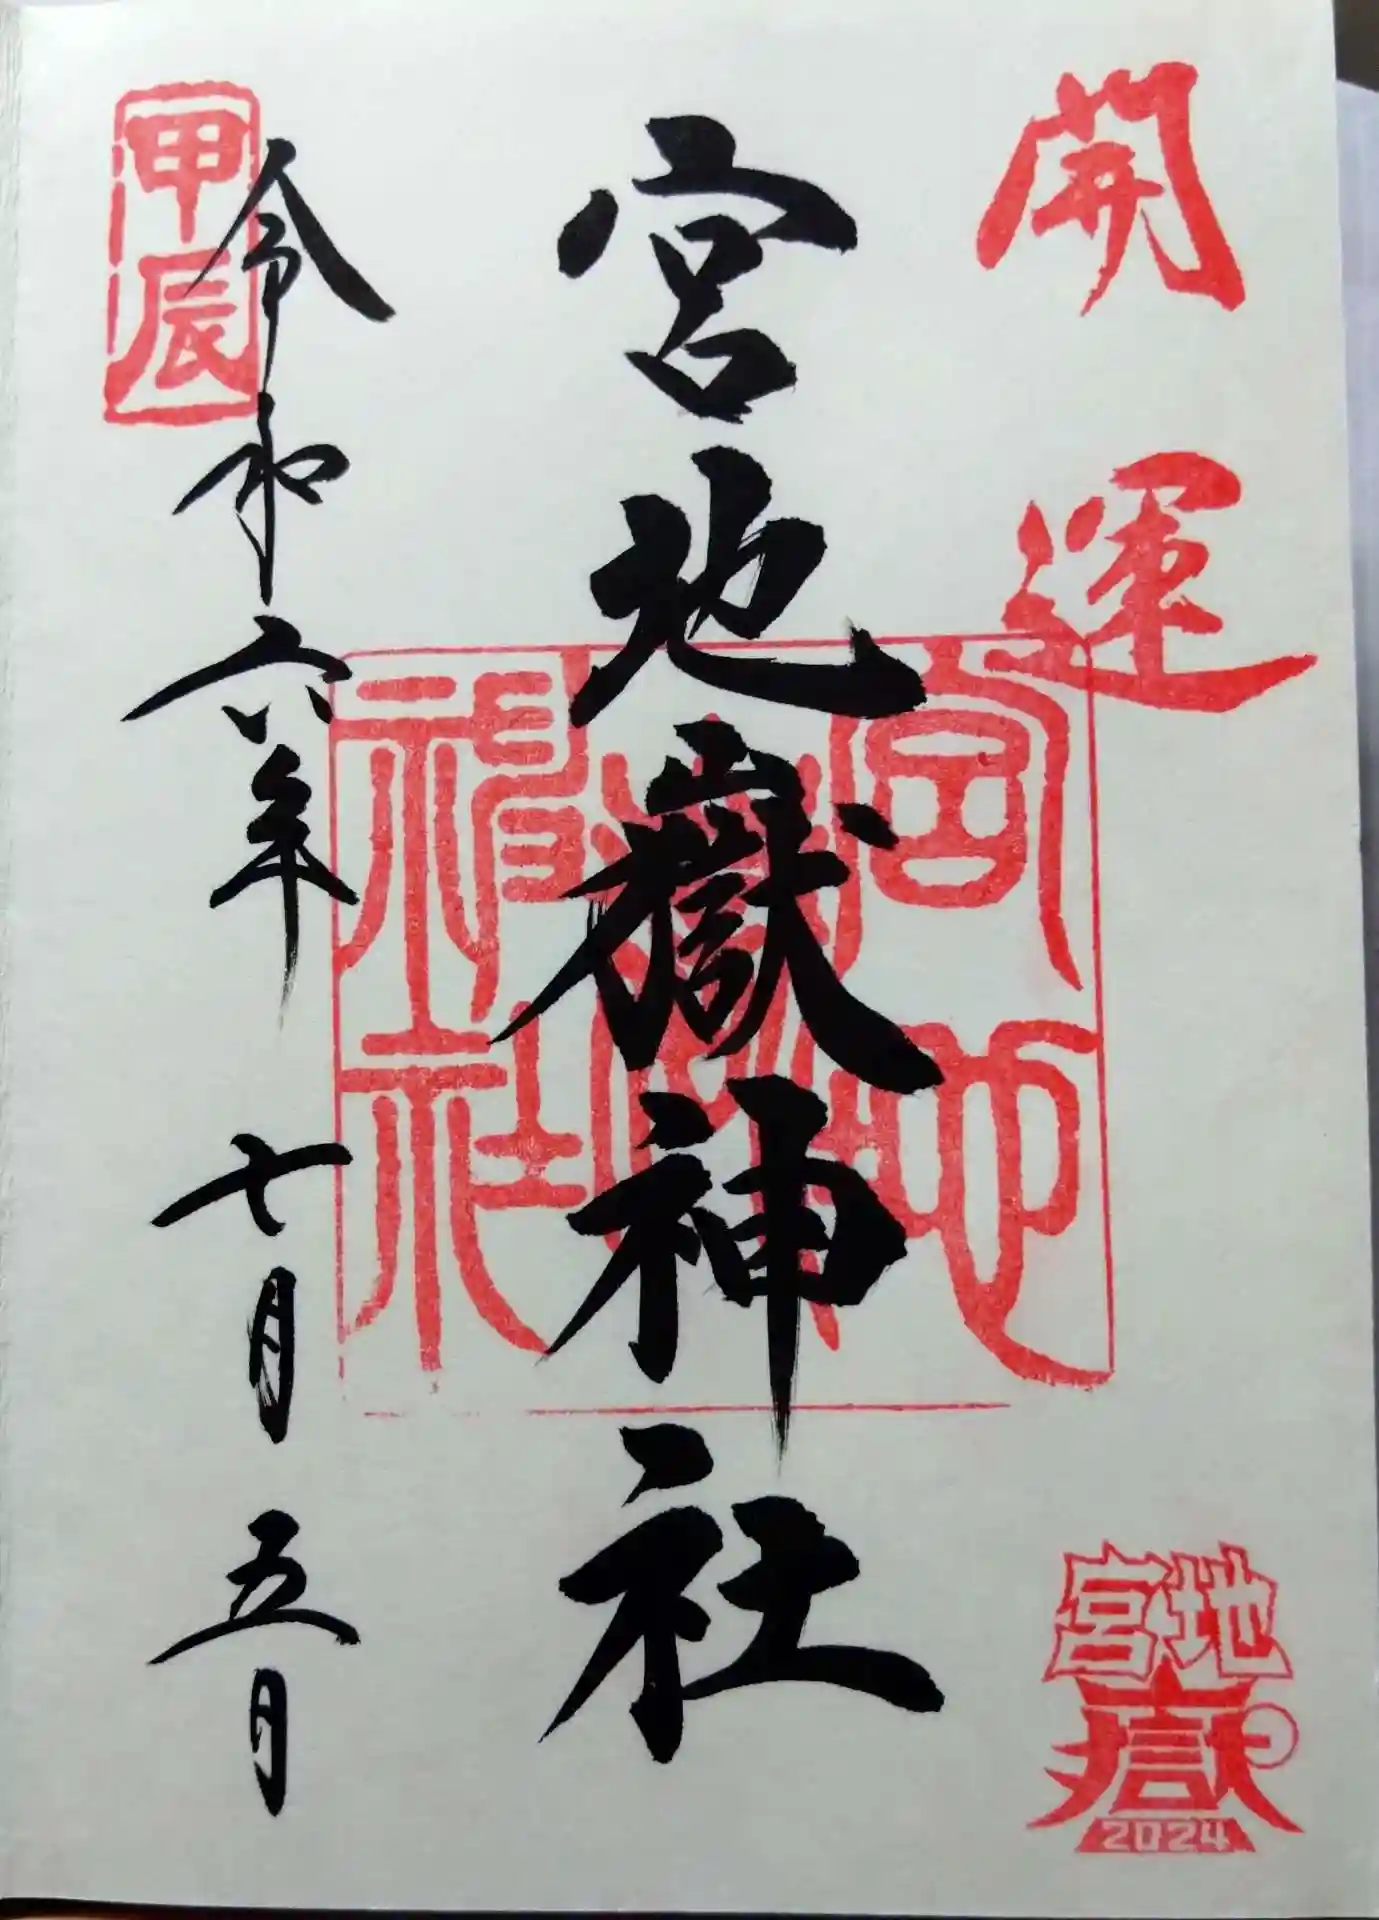 開運
宮地嶽神社
宮地
嶽神
神社
宮地
嶽
2024
甲辰
令和六年 七月 五日